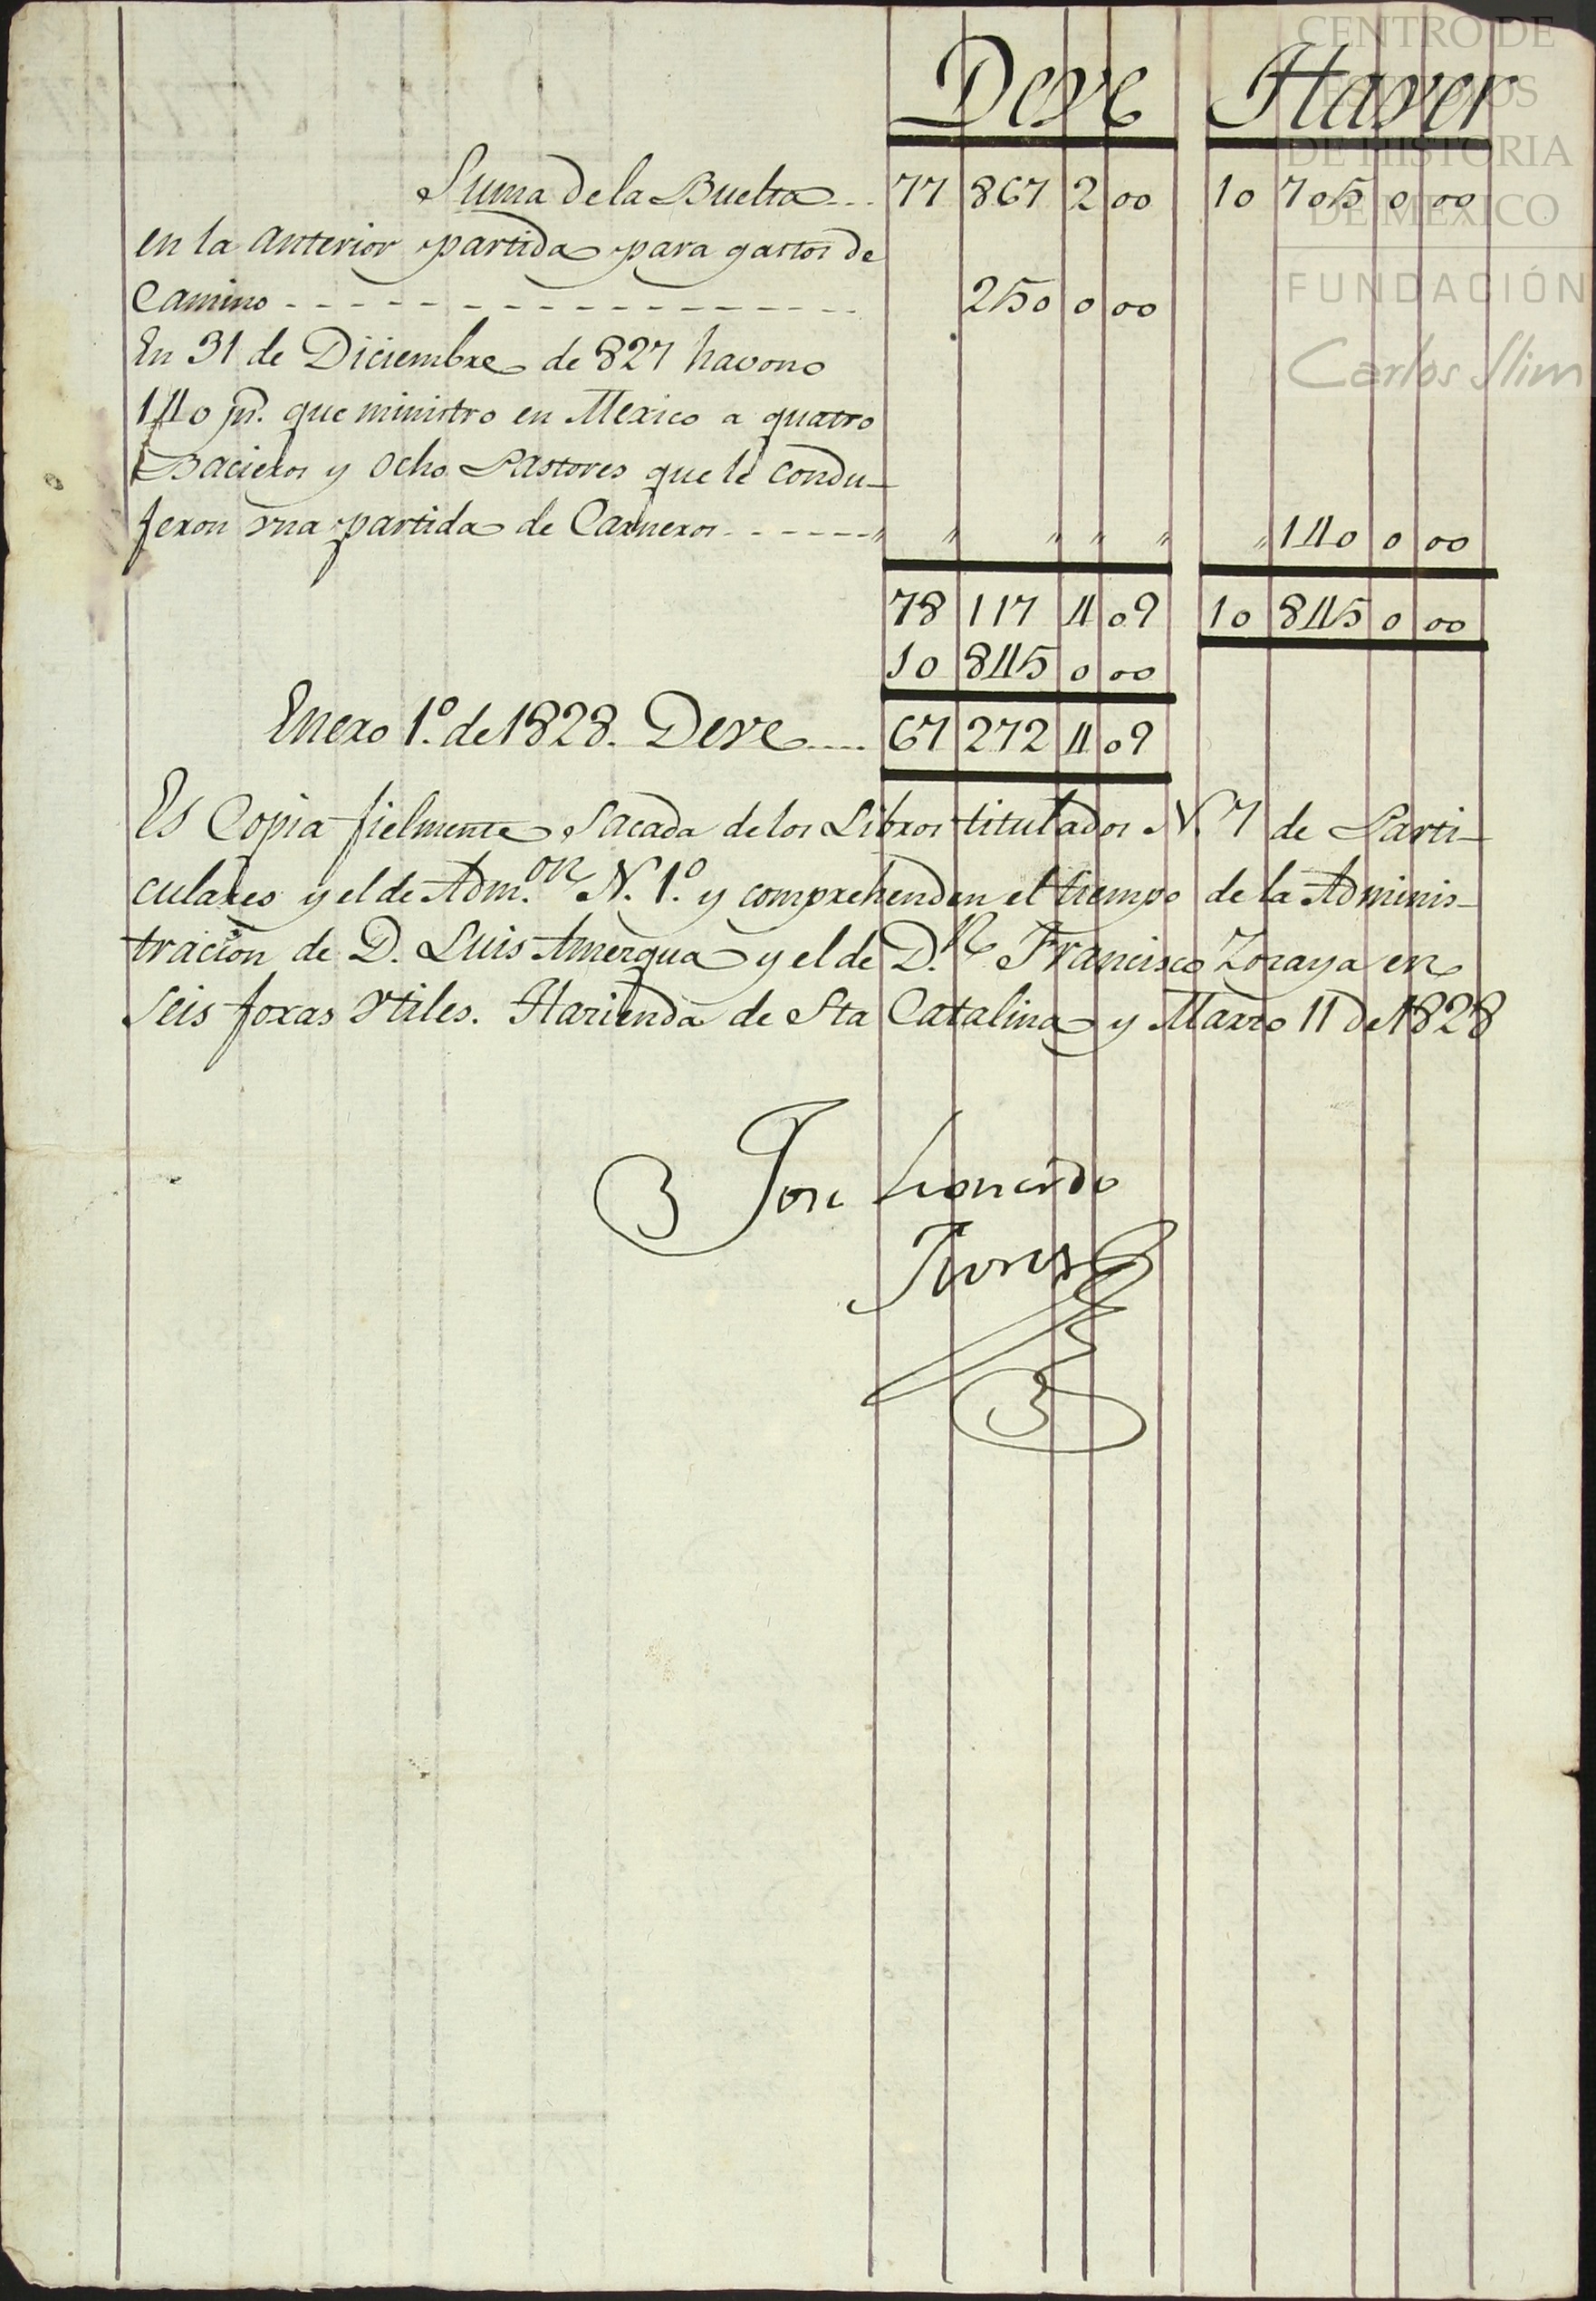 Deve Haver
Suma de la Buelta... 77 867 2 00 10 705 0 00
en la anterior partida para gastos de
Camino - - - - - - - - - - - - - - - - 250 0 00
En 31 de Diciembre de 827 havono
140 ps. que ministro en Mexico a quatro
Bacieros y ocho Pastores que le condu-
jeron vna partida de Carneros - - - - - - " " " " " " 140 0 00
78 117 4 09 10 845 0 00
10 845 0 00
Enero 1.º de 1828. Deve..... 67 272 4 09
Es Copia fielmente sacada de los Libros titulados N. 7 de Parti-
culares y el de Adm.on N. 1.º y comprehenden el tiempo de la Adminis-
tracion de D. Luis Amergua y el de D.n Francisco Zoraya en
seis foxas vtiles. Hazienda de Sta Catalina y Marzo 11 de 1828
Jose Leonardo
Flores
CENTRO DE
ESTUDIOS
DE HISTORIA
DE MÉXICO
FUNDACIÓN
Carlos Slim